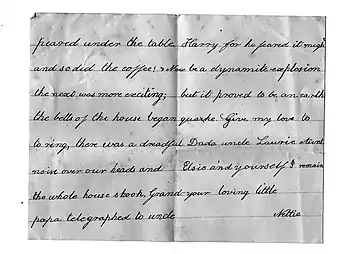 peared under the table
and so did the coffee! Now
the next was more exciting;
the bells of the house began
to ring, there was a dreadful
noise over our heads and
the whole house shook, Grand
papa telegraphed to uncle
Harry for he feared it might
be a dynamite explosion
but it proved to be an earth
quake. Give my love to
Dada uncle Laurie Aunt
Elsie and yourself I remain
your loving little
Nettie